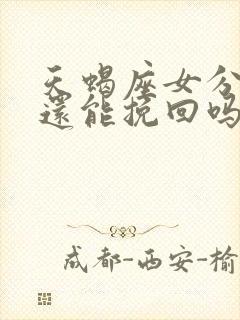 天蝎座女分
還能挽回吗
成都-西安-榆